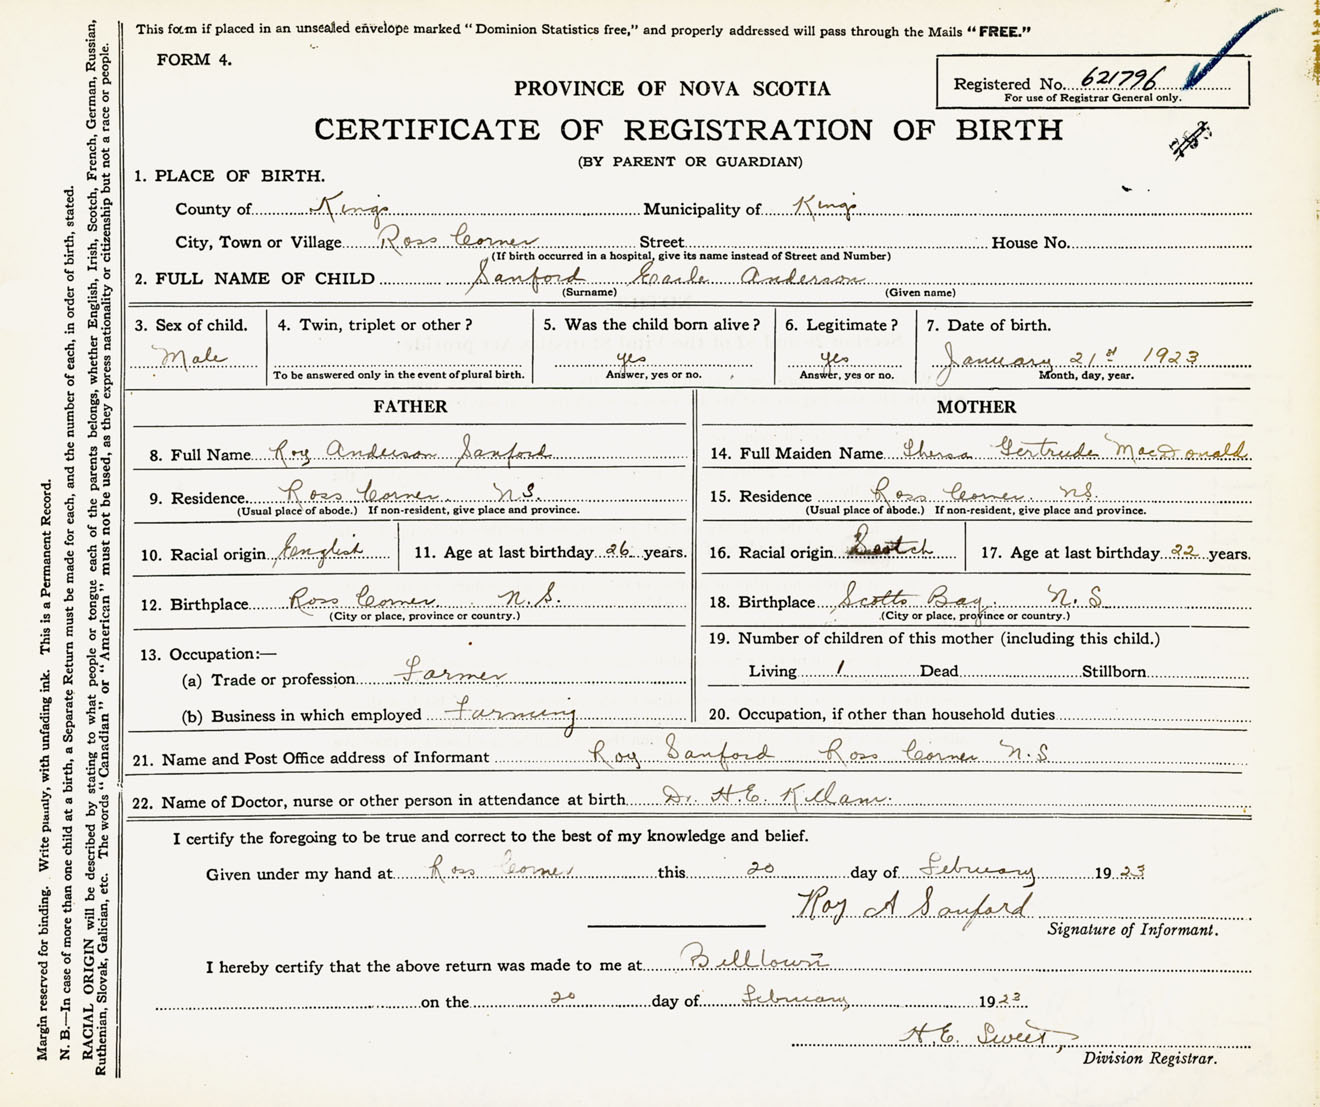 This form if placed in an unsealed envelope marked "Dominion Statistics free," and properly addressed will pass through the Mails "FREE."
FORM 4.
Registered No. 621796
For use of Registrar General only.
PROVINCE OF NOVA SCOTIA
CERTIFICATE OF REGISTRATION OF BIRTH
(BY PARENT OR GUARDIAN)
1. PLACE OF BIRTH.
County of Kings Municipality of Kings
City, Town or Village Ross Corner Street House No.
(If birth occurred in a hospital, give its name instead of Street and Number)
2. FULL NAME OF CHILD Sanford Earle Anderson
(Surname) (Given name)
3. Sex of child. 4. Twin, triplet or other? 5. Was the child born alive? 6. Legitimate? 7. Date of birth.
Male yes yes January 21st 1923
To be answered only in the event of plural birth. Answer, yes or no. Answer, yes or no. Month, day, year.
FATHER MOTHER
8. Full Name Roy Anderson Sanford 14. Full Maiden Name Theresa Gertrude MacDonald
9. Residence Ross Corner. N.S. 15. Residence Ross Corner. N.S.
(Usual place of abode.) If non-resident, give place and province. (Usual place of abode.) If non-resident, give place and province.
10. Racial origin English 11. Age at last birthday 26 years. 16. Racial origin Scotch 17. Age at last birthday 22 years.
12. Birthplace Ross Corner N.S. 18. Birthplace Scotts Bay. N.S
(City or place, province or country.) (City or place, province or country.)
19. Number of children of this mother (including this child.)
13. Occupation:—
(a) Trade or profession Farmer Living 1 Dead Stillborn
(b) Business in which employed Farming 20. Occupation, if other than household duties
21. Name and Post Office address of Informant Roy Sanford Ross Corner N.S
22. Name of Doctor, nurse or other person in attendance at birth Dr. H.E. Killam.
I certify the foregoing to be true and correct to the best of my knowledge and belief.
Given under my hand at Ross Corner this 20 day of February 1923
Roy A Sanford
Signature of Informant.
I hereby certify that the above return was made to me at Billtown
on the 20 day of February 1923
H.E. Sweet,
Division Registrar.
Margin reserved for binding. Write plainly, with unfading ink. This is a Permanent Record.
N. B.—In case of more than one child at a birth, a Separate Return must be made for each, and the number of each, in order of birth, stated.
RACIAL ORIGIN will be described by stating to what people or tongue each of the parents belongs, whether English, Irish, Scotch, French, German, Russian,
Ruthenian, Slovak, Galician, etc. The words "Canadian" or "American" must not be used, as they express nationality or citizenship but not a race or people.